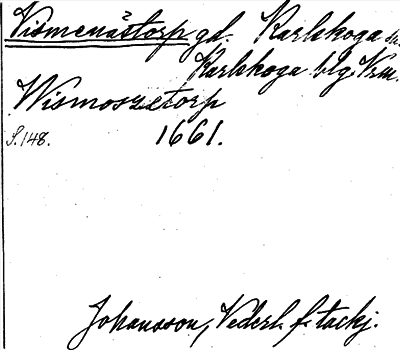 Vismenästorp gd. Karlskoga sn.
Karlskoga blg Vrm.
Wismoszetorp
S. 148. 1661.
Johansson, Vederl. f. tackj.